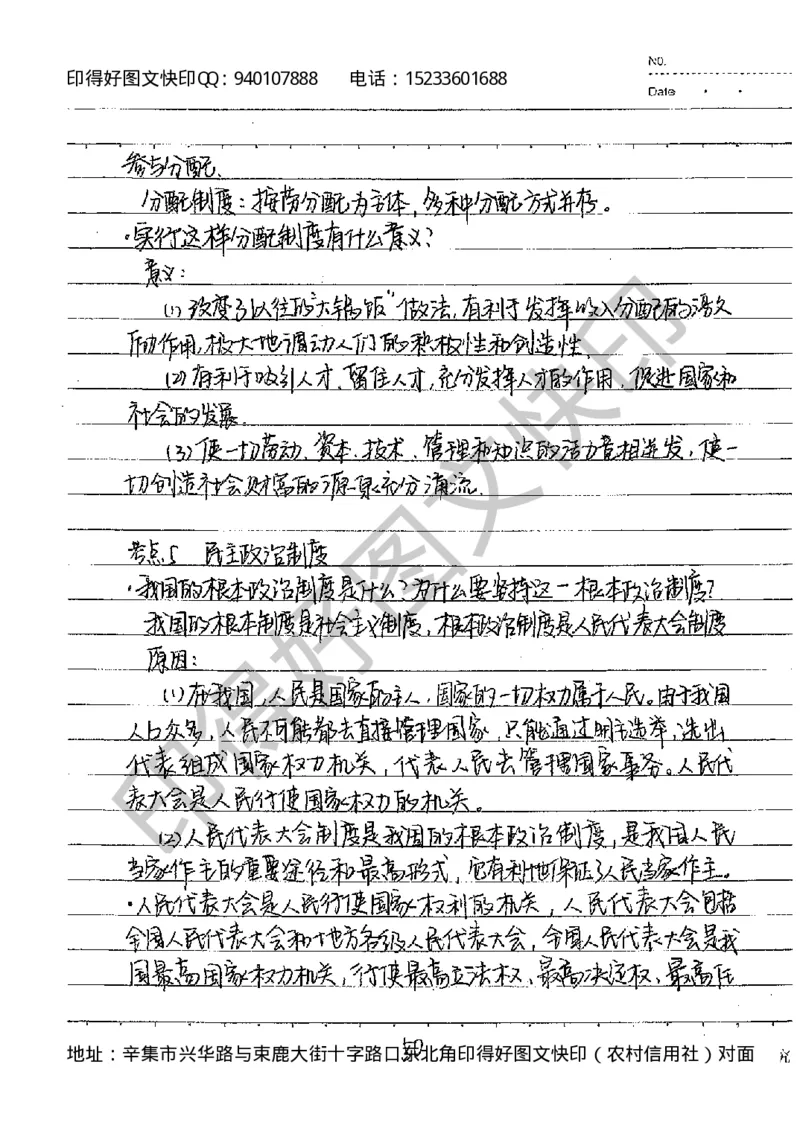 NO.
印得好图文快印QQ：940107888 电话：15233601688
Date
参与分配.
分配制度：按劳分配为主体，多种分配方式并存。
·实行这样分配制度有什么意义？
意义：
(1) 改变了以往的"大锅饭"做法，有利于发挥收入分配的激励作用，极大地调动人们的积极性和创造性.
(2) 有利于吸引人才、留住人才，充分发挥人才的作用，促进国家和
社会的发展.
(3) 使一切劳动、资本、技术、管理和知识的活力竞相迸发，使一
切创造社会财富的源泉充分涌流.
考点5 民主政治制度
·我国的根本政治制度是什么？为什么要坚持这一根本政治制度？
我国的根本制度是社会主义制度，根本政治制度是人民代表大会制度
原因：
(1) 在我国，人民是国家的主人，国家的一切权力属于人民。由于我国
人口众多，人民不可能都去直接管理国家，只能通过民主选举，选出
代表组成国家权力机关，代表人民去管理国家事务。人民代
表大会是人民行使国家权力的机关。
(2) 人民代表大会制度是我国的根本政治制度，是我国人民
当家作主的重要途径和最高形式，它有利地保证了人民当家作主。
·人民代表大会是人民行使国家权利的机关，人民代表大会包括
全国人民代表大会和地方各级人民代表大会，全国人民代表大会是我
国最高国家权力机关，行使最高立法权、最高决定权、最高任
地址：辛集市兴华路与束鹿大街十字路口东北角印得好图文快印（农村信用社）对面
印得好图文快印